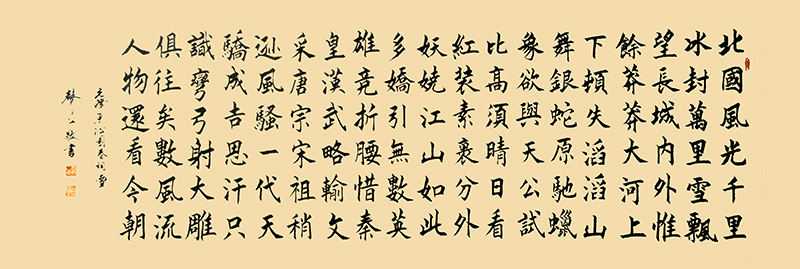 北國風光千里
冰封萬里雪飄
望長城內外惟
餘莽莽大河上
下頓失滔滔山
舞銀蛇原馳蠟
象欲與天公試
比高須晴日看
紅裝素裹分外
妖嬈江山如此
多嬌引無數英
雄竟折腰惜秦
皇漢武略輸文
采唐宗宋祖稍
逊風騷一代天
驕成吉思汗只
識彎弓射大雕
俱往矣數風流
人物還看今朝
沁園春詞雪
書